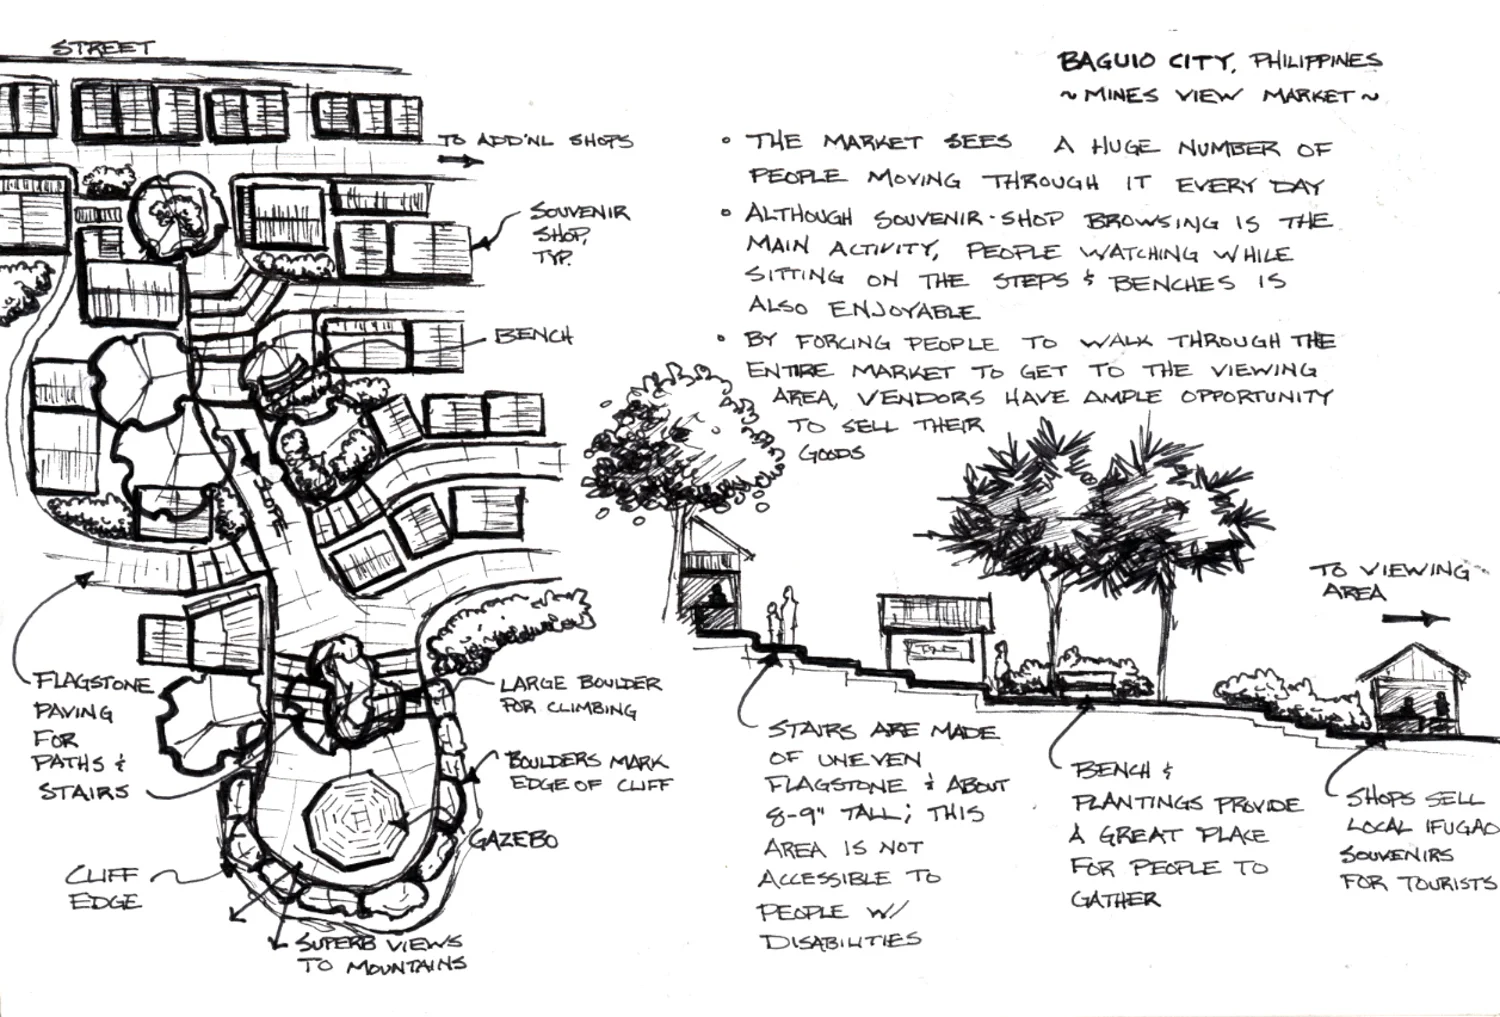 STREET
BAGUIO CITY, PHILIPPINES
~ MINES VIEW MARKET ~
TO ADD'NL SHOPS
• THE MARKET SEES A HUGE NUMBER OF
PEOPLE MOVING THROUGH IT EVERY DAY
• ALTHOUGH SOUVENIR-SHOP BROWSING IS THE
MAIN ACTIVITY, PEOPLE WATCHING WHILE
SITTING ON THE STEPS & BENCHES IS
ALSO ENJOYABLE
• BY FORCING PEOPLE TO WALK THROUGH THE
ENTIRE MARKET TO GET TO THE VIEWING
AREA, VENDORS HAVE AMPLE OPPORTUNITY
TO SELL THEIR
GOODS
SOUVENIR
SHOP,
TYP.
BENCH
SLOPE
FLAGSTONE
PAVING
FOR
PATHS &
STAIRS
LARGE BOULDER
FOR CLIMBING
BOULDERS MARK
EDGE OF CLIFF
GAZEBO
CLIFF
EDGE
SUPERB VIEWS
TO MOUNTAINS
TO VIEWING
AREA
STAIRS ARE MADE
OF UNEVEN
FLAGSTONE & ABOUT
8-9" TALL; THIS
AREA IS NOT
ACCESSIBLE TO
PEOPLE W/
DISABILITIES
BENCH &
PLANTINGS PROVIDE
A GREAT PLACE
FOR PEOPLE TO
GATHER
SHOPS SELL
LOCAL IFUGAO
SOUVENIRS
FOR TOURISTS